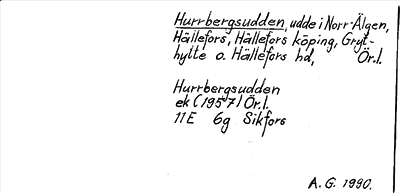 Hurrbergsudden, udde i Norr-Älgen,
Hällefors, Hällefors köping, Gryt-
hytte o. Hällefors hd, Ör.l.
Hurrbergsudden
ek (1957) Ör.l.
11E 6g Sikfors
A.G. 1990.